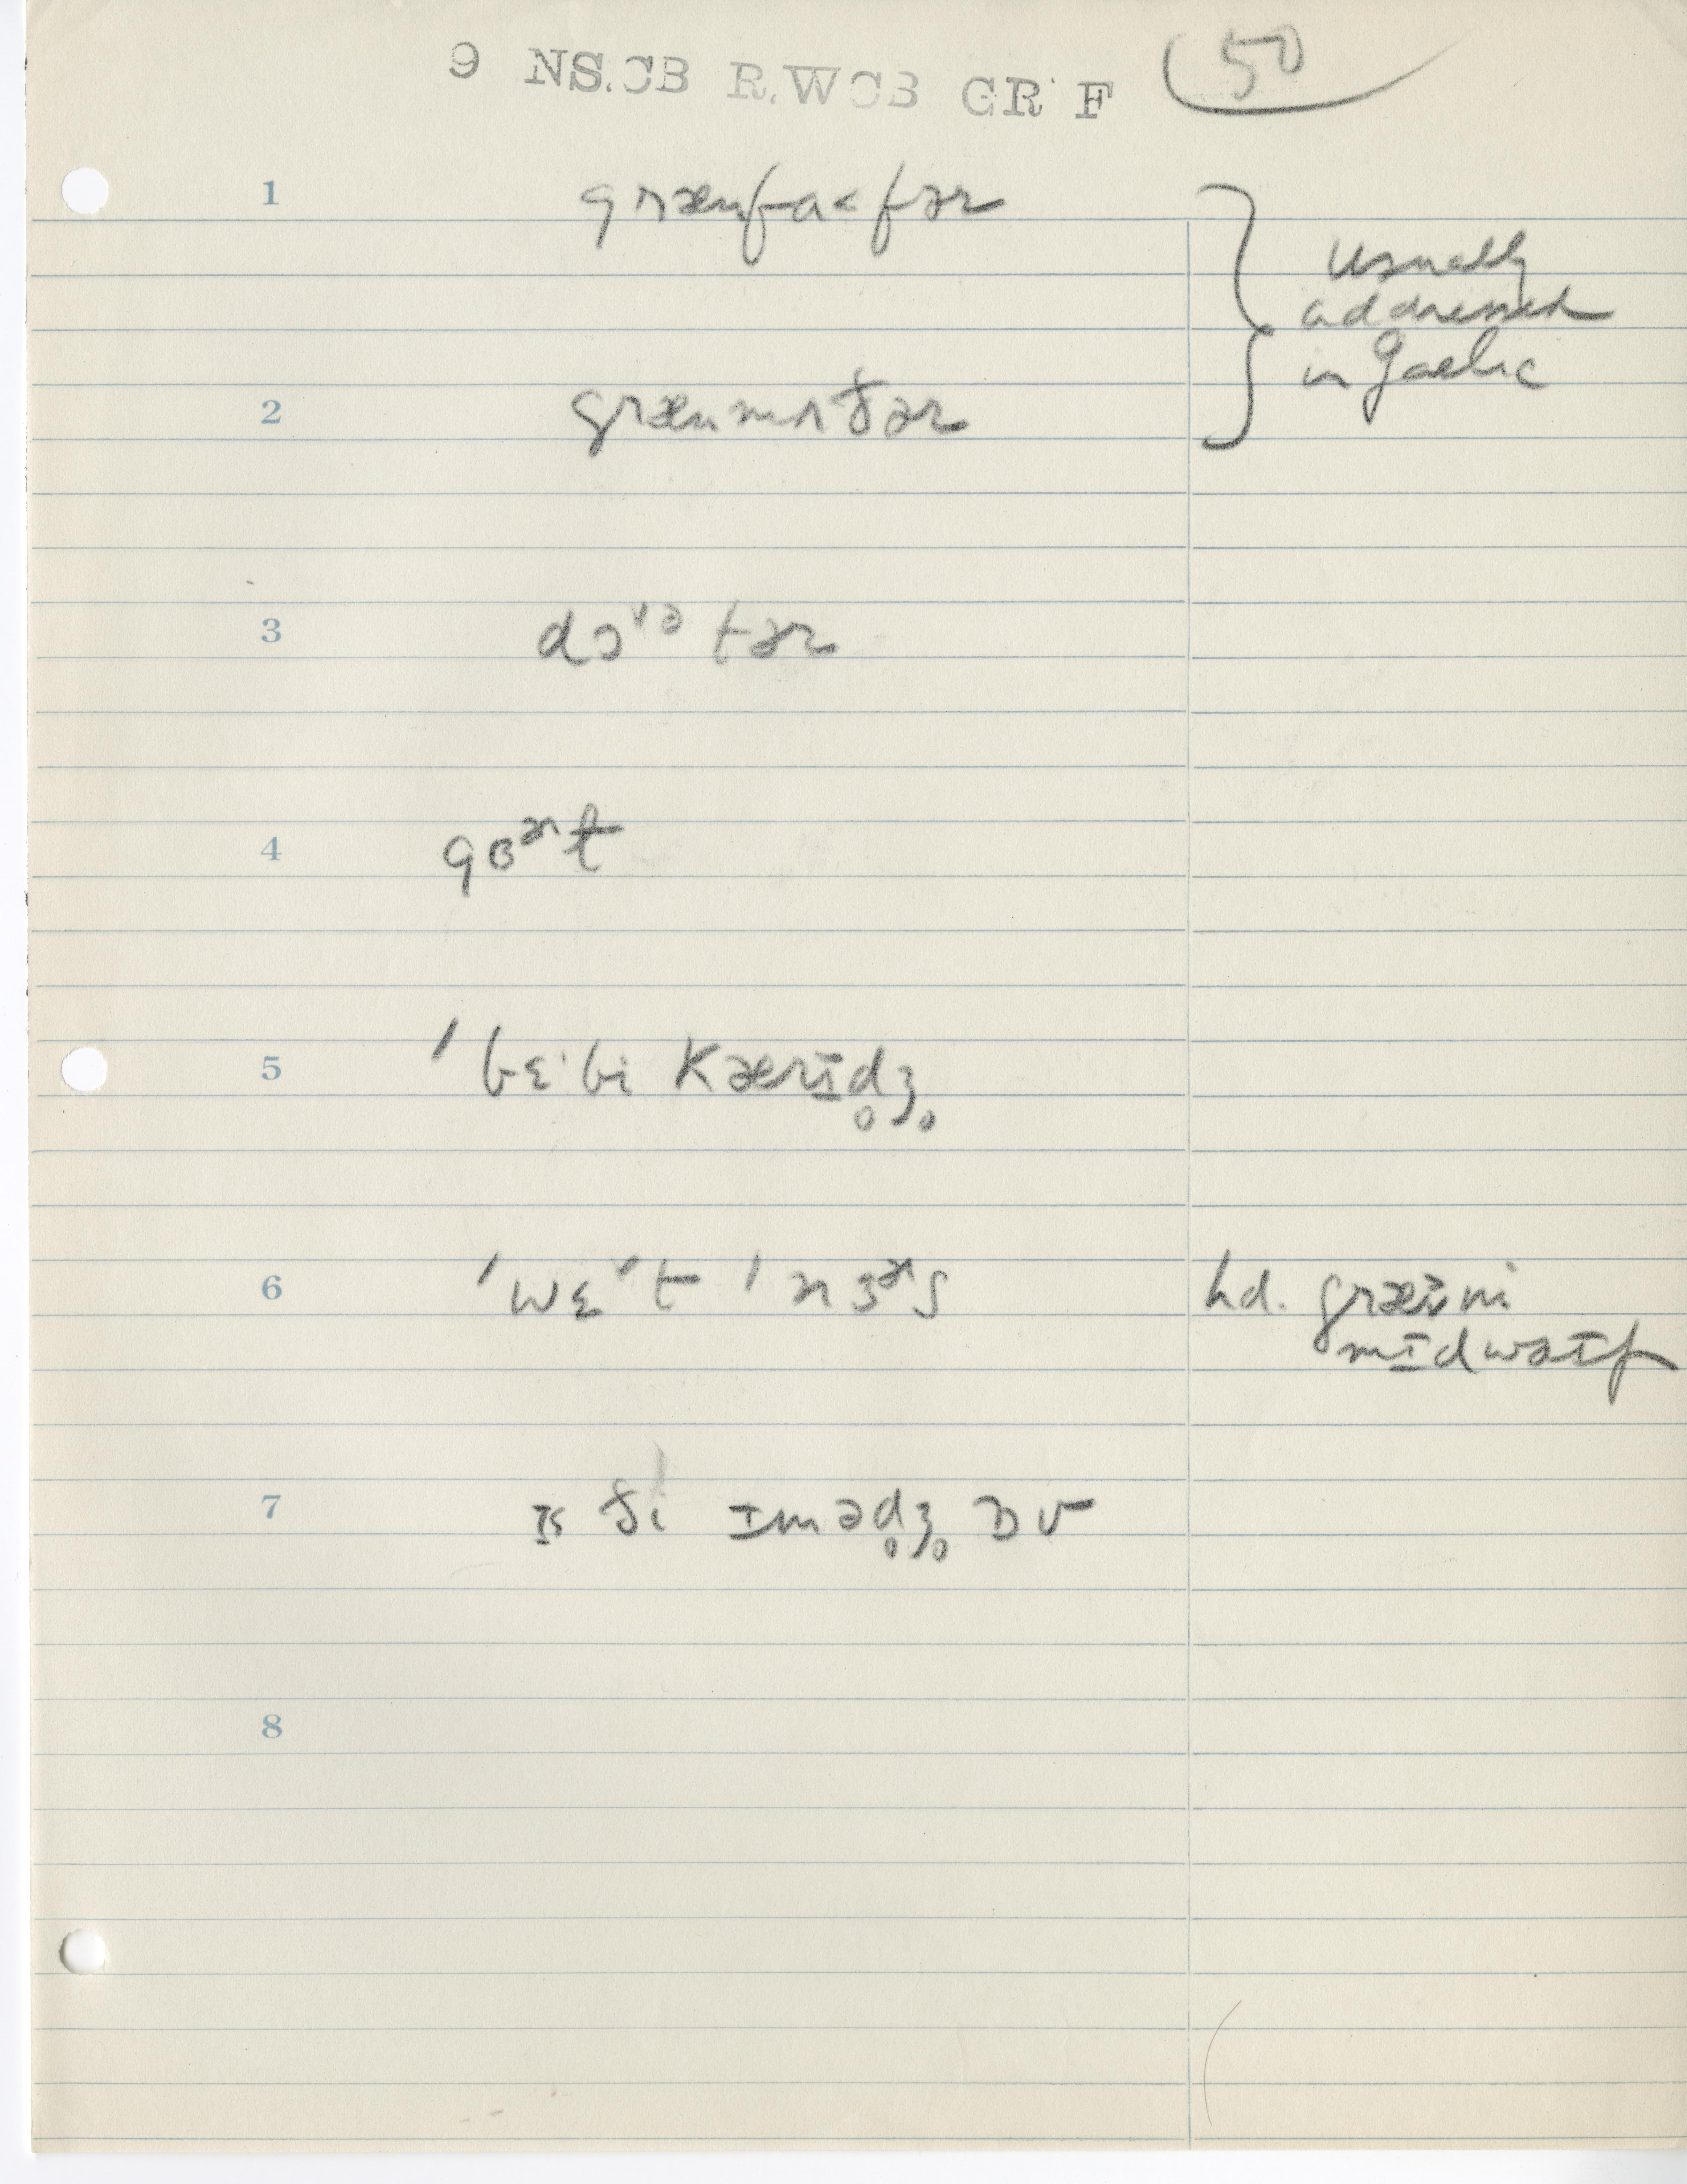 9 NS.CB R.WCB GR F 50
1 grænfa˂ðər
usually
addressed
in Gaelic
2 grænmʌðər
3 dɔ˅ᵊtər
4 gɵᵊʳt
5 ˈbɛ·bi kærɪd̥ʒ̥
6 ˈwɛ˅t ˈnɜᵊʳs
hd. græni
mɪdwəɪf
7 ɪs ði ɪməd̥ʒ̥ ɒv
8